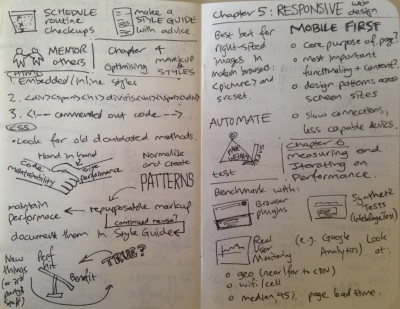 SCHEDULE
routine
checkups
make a
STYLE GUIDE
with advice
MENTOR
others
Chapter 4
Optimising
MARKUP
STYLES
HTML
1. Embedded/inline styles
2.
3. <!-- commented out code -->
CSS
• Look for old outdated methods
Hand in hand
Code
maintainability
site
performance
Normalize
and create
PATTERNS
maintain
performace
repurposable markup
continued reuse?
document them in Style Guide
TRUE?
New
things
(or 3rd
party
Perf
hit
Benefit
Chapter 5: RESPONSIVE web
design
Best bet for
right-sized
images in
modern browsers:
<picture> and
srcset.
AUTOMATE
test
MOBILE FIRST
o core purpose of page?
o most important
functionality + content?
o design patterns across
screen sizes
o slow connections,
less capable devices.
Chapter 6
measuring and
Iterating on
Performance.
Benchmark with:
Browser
plugins
Synthetic
Tests
(WebPageTest)
Real
User
Monitoring
(e.g. Google
Analytics)
Look
at:
o geo (near/far to CDN)
o wifi/cell
o median, 95%, page load time.